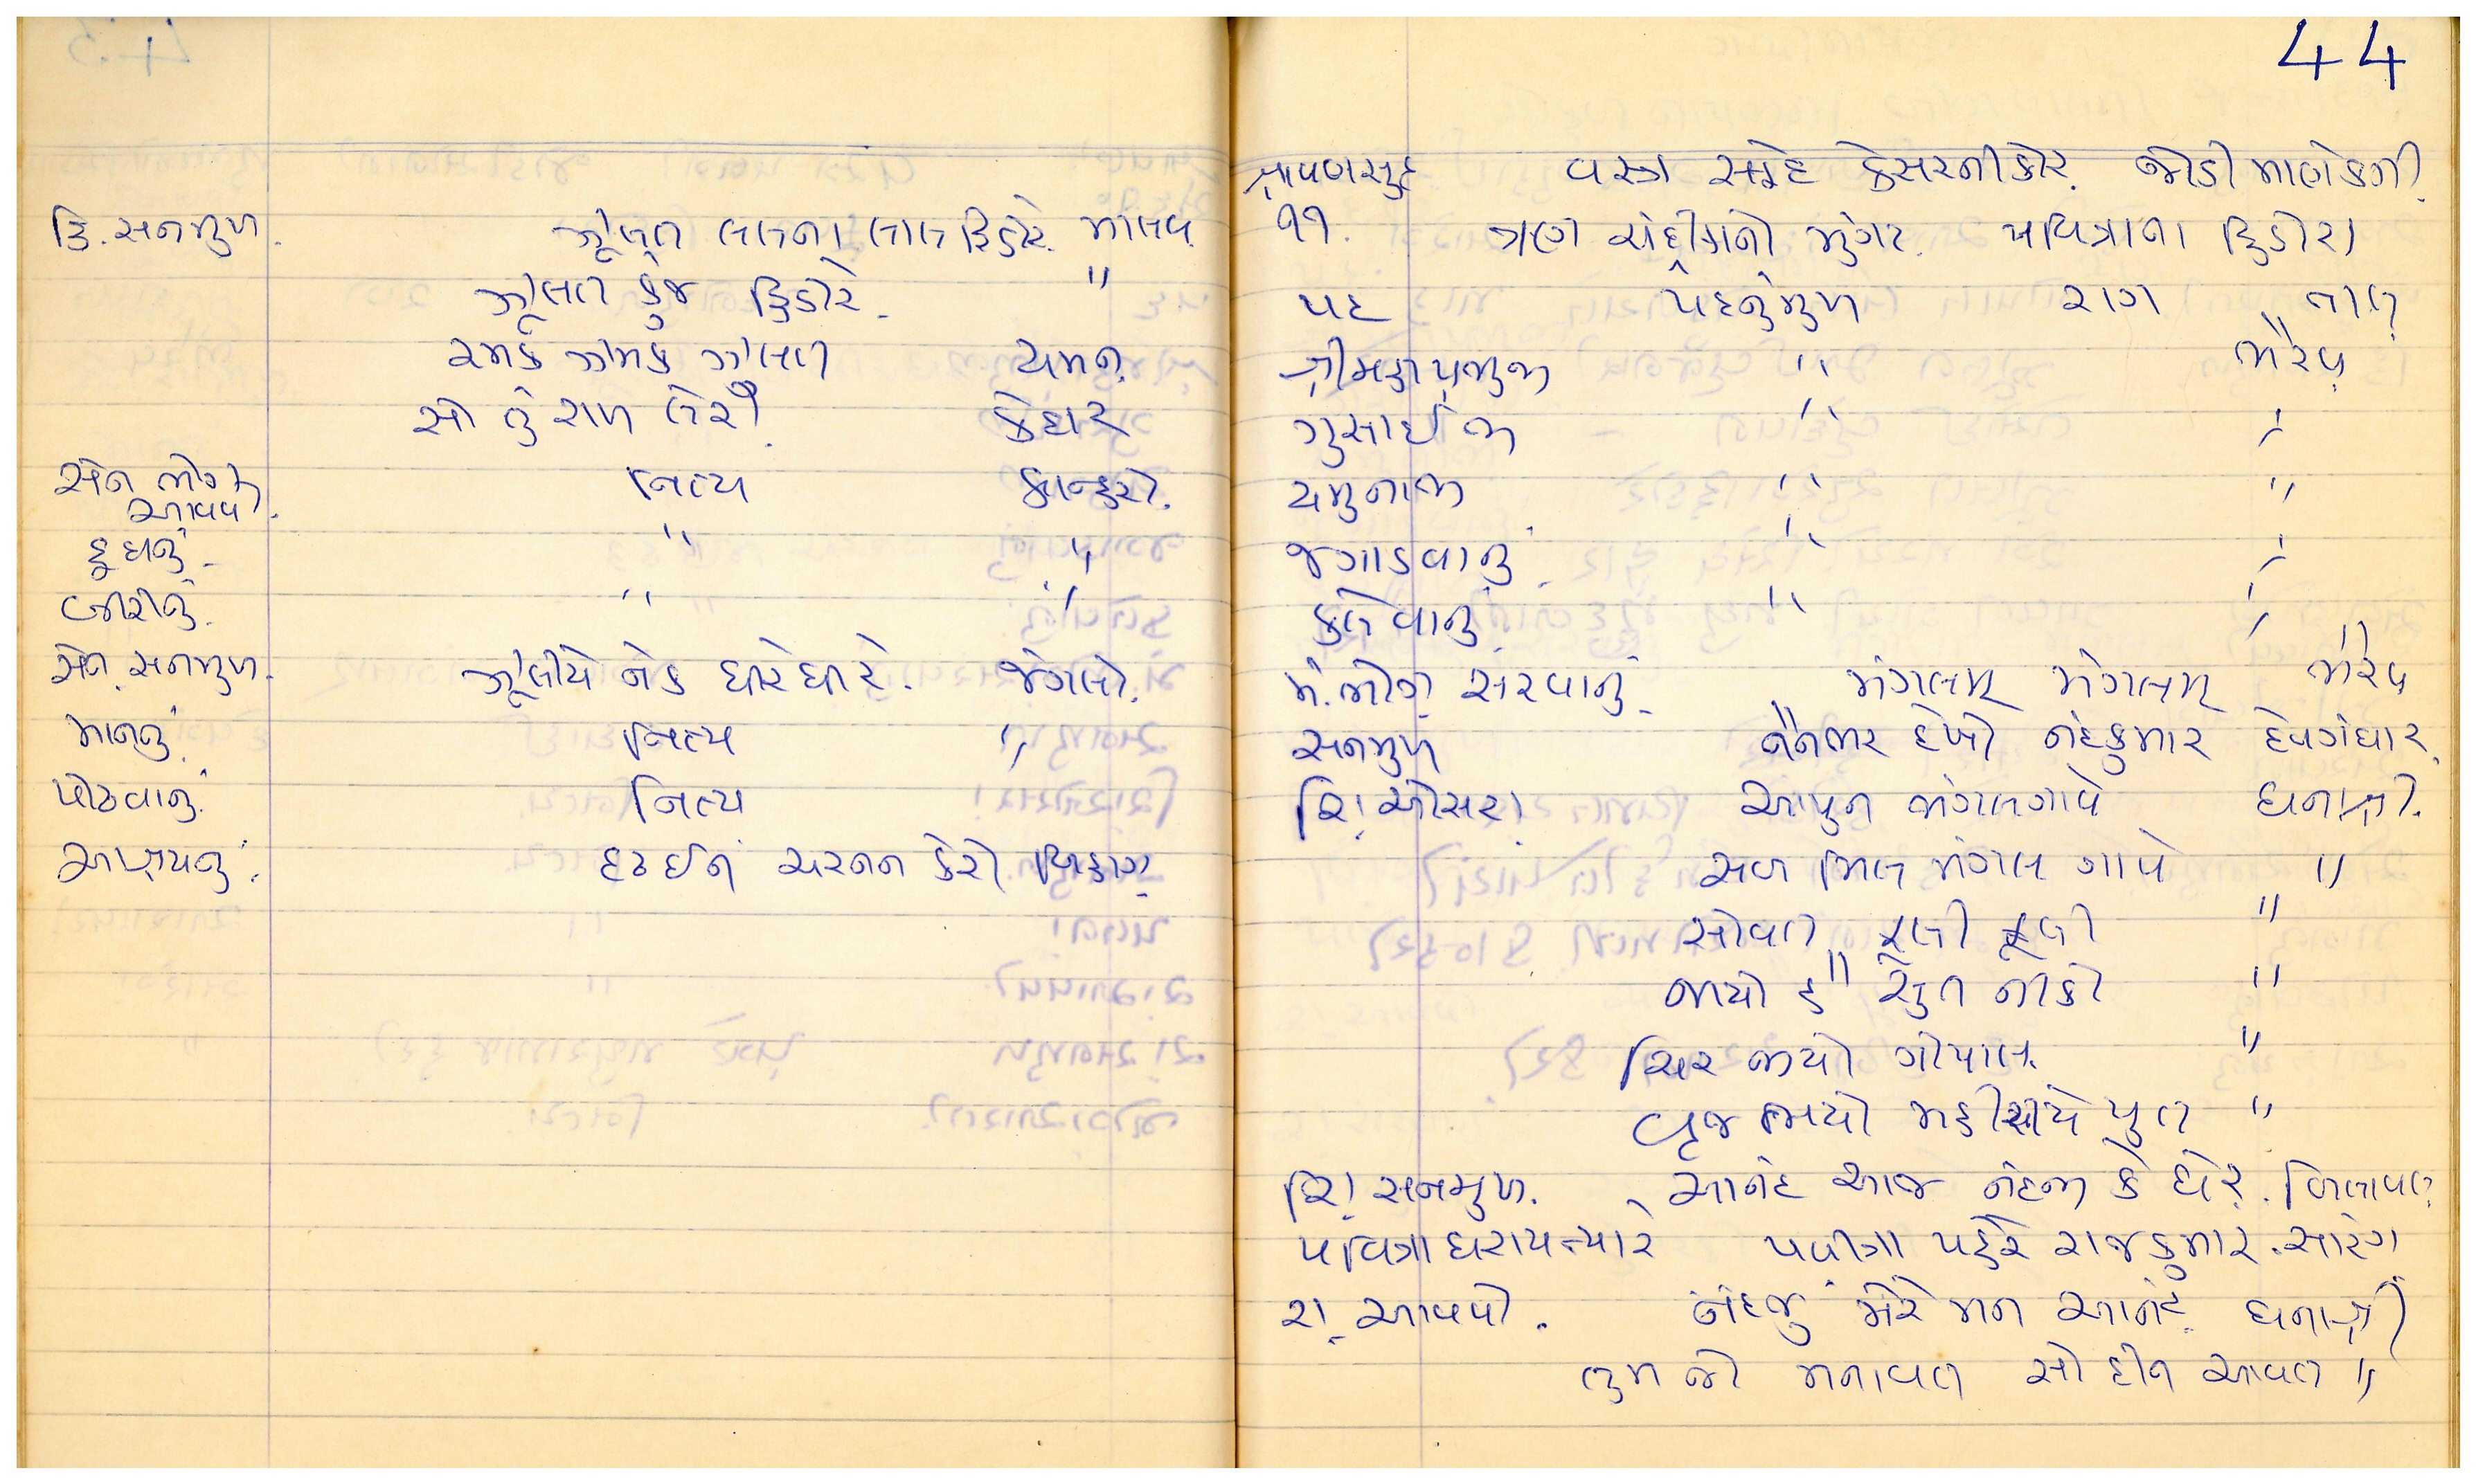 હિ. સનમુખ. ઝૂલત લલના લાલ હિંડોરે. માલવ.
ઝૂલત કુંજ હિંડોરે. "
રમક ઝમક ઝુલત યમન.
સો તું રાખ લેરી. કેદાર
સેન ભોગ આવવો. નિત્ય કાન્હરો.
દૂધનું. " "
બીરીનું. " "
સેન. સનમુખ. ઝૂલીયે નેક ધીરે ધીરે. જંગલો.
માનનું. નિત્ય "
પોઢવાનું. નિત્ય
આશ્રયનું. દૃઢ ઈન ચરનન કેરો બિહાગ.
44
શ્રાવણ સુદ ૧૧. વસ્ત્ર સફેદ કેસરની કોર. જોડી માણેકની.
ત્રણ ચંદ્રીકાનો મુગટ. પવિત્રાના હિંડોરા
પદ પદનુંમુખ રાગ તાલ
શ્રીમહાપ્રભુજી " ભૈરવ
ગુસાઈજી " "
યમુનાજી " "
જગાડવાનું. " "
કલેવાનું. " "
મં. ભોગ સરવાનું. મંગલમ્ મંગલમ્ ભૈરવ
સનમુખ નૈનભર દેખો નંદકુમાર દેવગંધાર.
શિં. ઓસરા. આપુન મંગલગાવે ધનાશ્રી.
સબ મિલ મંગલ ગાવો "
સોવન ફૂલન ફૂલી "
જાયો હૈ સુત નીકો "
ચિર જીયો ગોપાલ. "
વ્રજ ભયો મહીરાયે પુત "
શિં. સનમુખ. આનંદ આજ નંદજી કે દ્વાર. બિલાવલ.
પવિત્રા ધરાય ત્યારે પવીત્રા પહેરે રાજકુમાર. સારંગ
રા. આવવો. નંદજુ મેરે મન આનંદ. ધનાશ્રી
તુમ જો મનાવત સો દીન આવત "